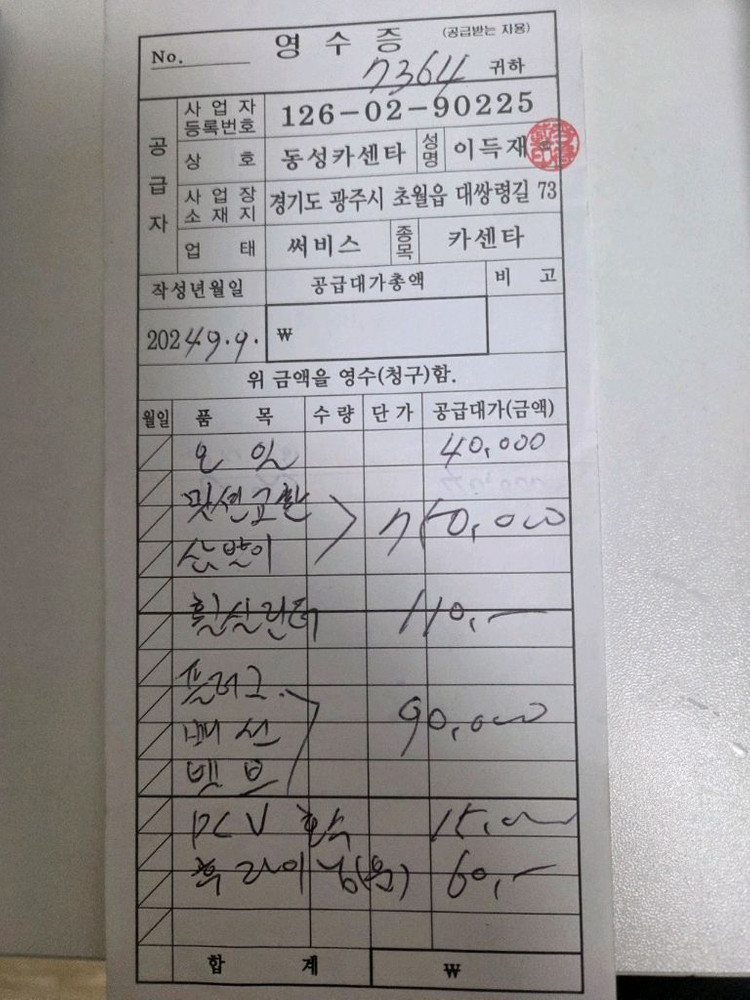 영수증 (공급받는 자용)
No.
7364 귀하
공급자
사업자등록번호 126-02-90225
상호 동성카센타 성명 이득재
사업장소재지 경기도 광주시 초월읍 대쌍령길 73
업태 써비스 종목 카센타
작성년월일 공급대가총액 비고
2024.9.9. ₩
위 금액을 영수(청구)함.
월일 품목 수량 단가 공급대가(금액)
오일 40,000
밋션교환
750,000
휠실린더 110,-
프러그.
배선 90,000
PCV 호스 15,000
후 라이닝 60,-
합계 ₩